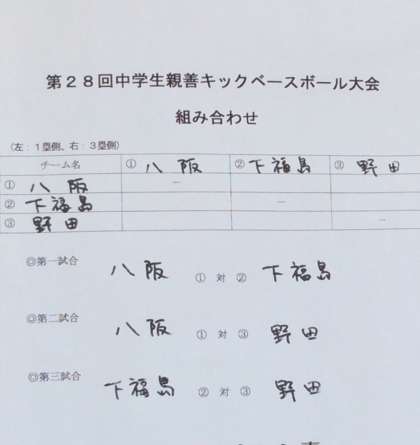 第28回中学生親善キックベースボール大会
組み合わせ
(左:1塁側、右:3塁側)
チーム名 ① 八阪 ② 下福島 ③ 野田
① 八阪 －
② 下福島 －
③ 野田 －
◎第一試合 八阪 ① 対 ② 下福島
◎第二試合 八阪 ① 対 ③ 野田
◎第三試合 下福島 ② 対 ③ 野田